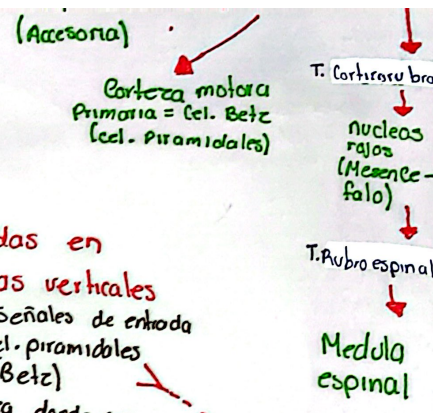 (Accesoria)
Corteza motora
Primaria = Cel. Betz
(cel. Piramidales)
T. Corticorubro
nucleos
rojos
(Mesence-
falo)
T. Rubroespinal
Medula
espinal
das en
as verticales
señales de entrada
el. piramidales
Betz)